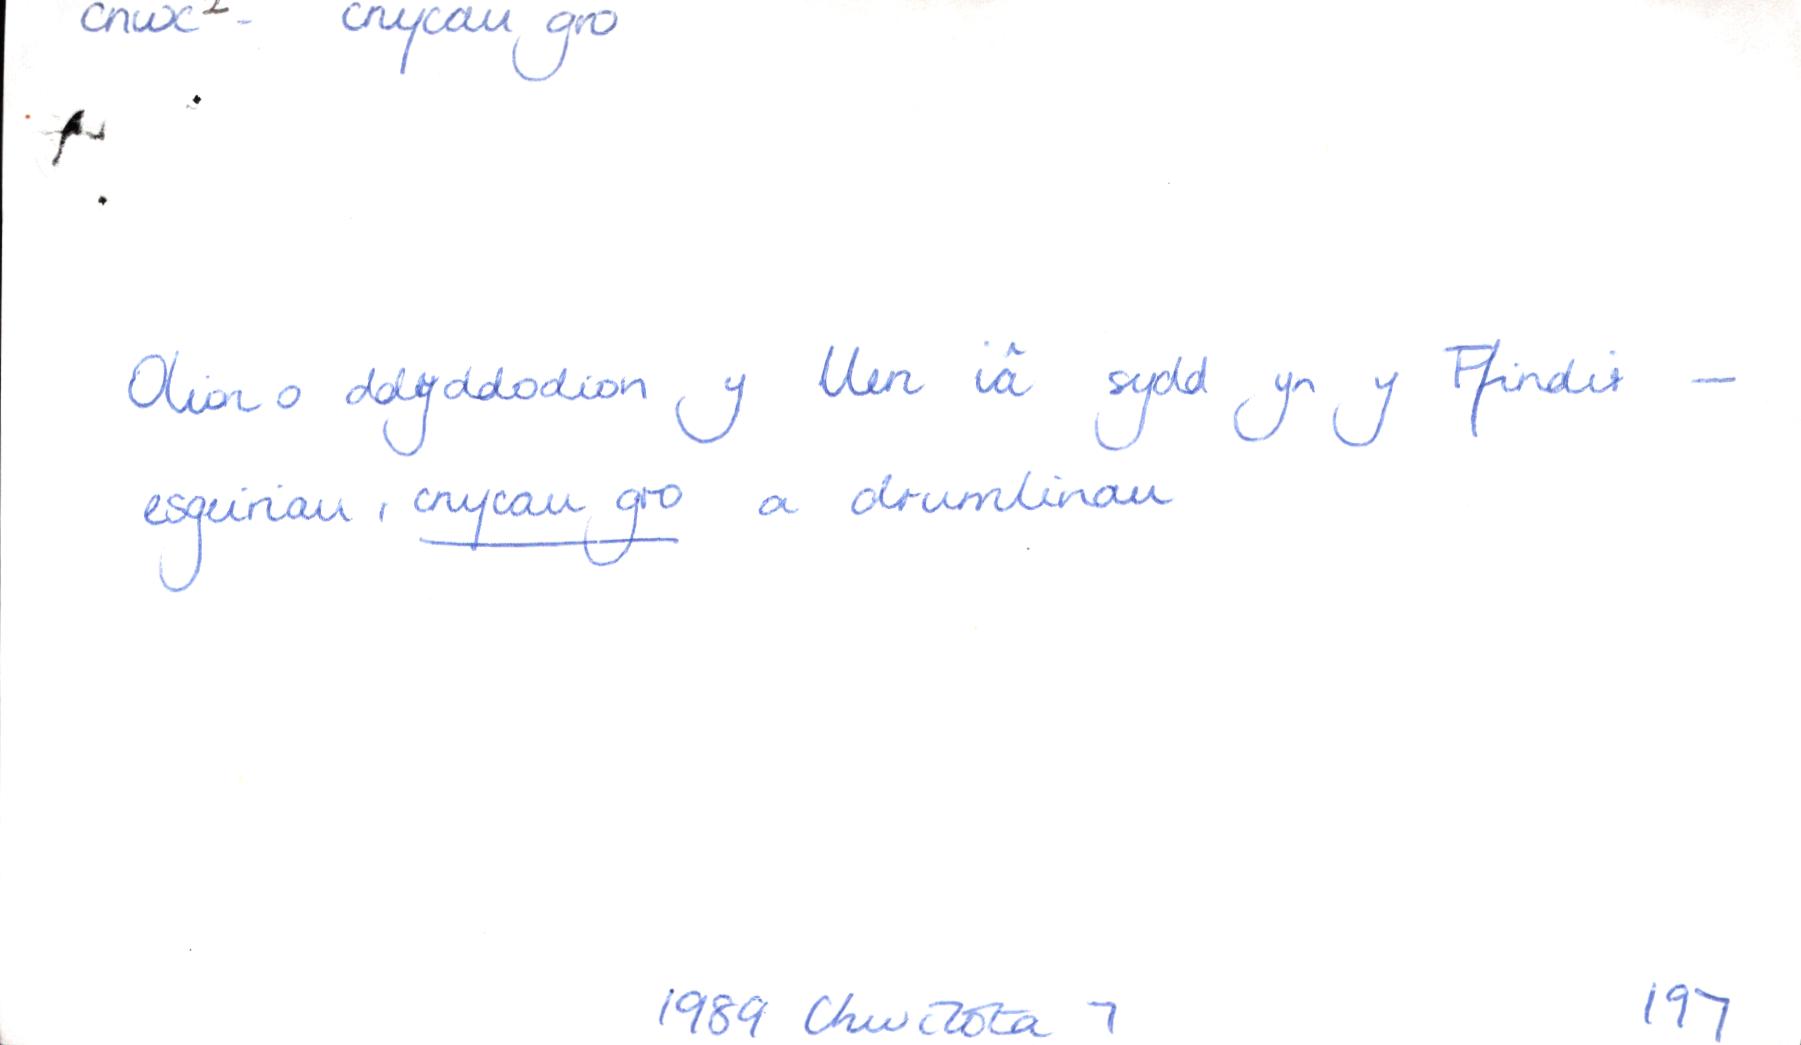 cnwc² - cnycau gro
Olion o ddyddodion y llen iâ sydd yn y Ffindir —
esgeiriau, cnycau gro a drumlinau
1989 Chwilota 7 197